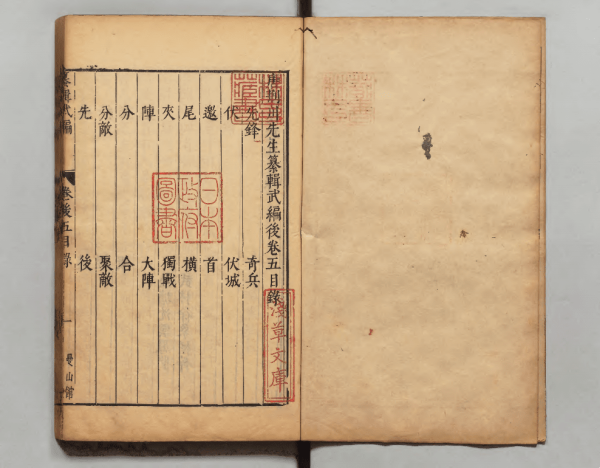 唐荊川先生纂輯武編後卷五目錄
先鋒　奇兵
伏　伏城
邀　首
尾　橫
夾　獨戰
陣　大陣
分　合
分敵　聚敵
先　後
纂輯武編　卷後五目錄　一　曼山館
日本
政府
圖書
淺草文庫